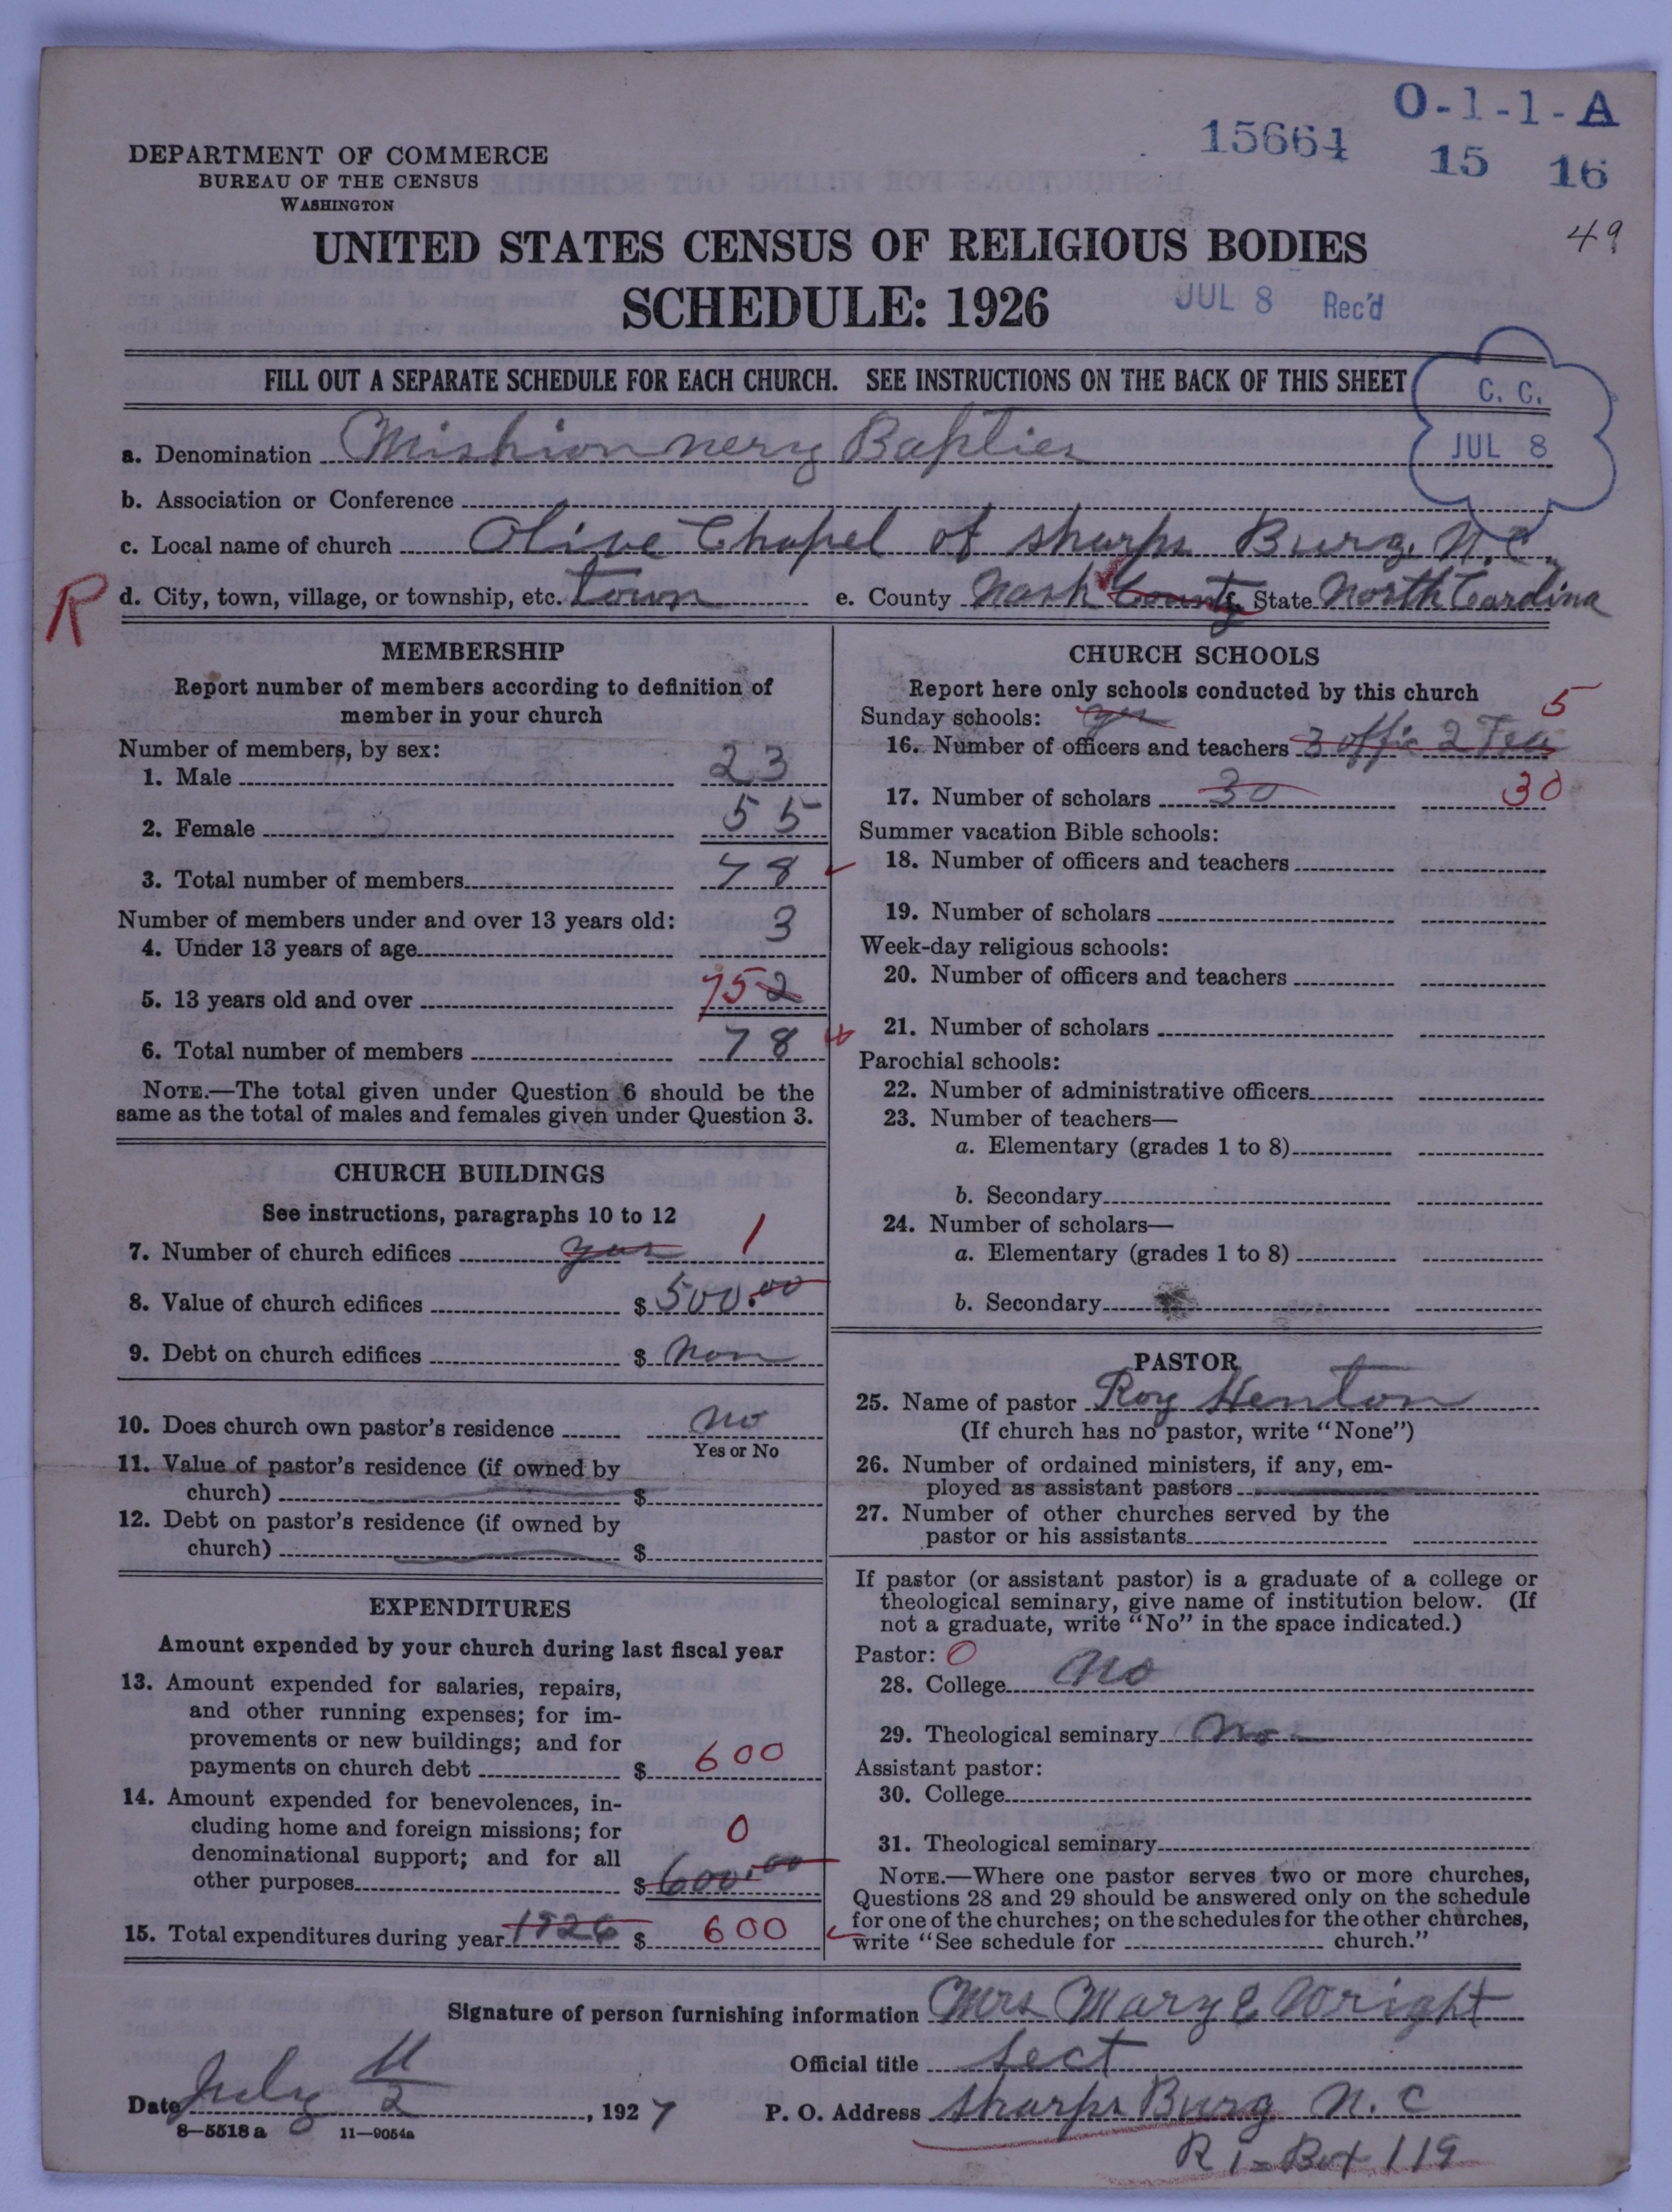 O-1-1-A
15664 15 16
49
DEPARTMENT OF COMMERCE
BUREAU OF THE CENSUS
WASHINGTON
UNITED STATES CENSUS OF RELIGIOUS BODIES
SCHEDULE: 1926
JUL 8 Rec'd
FILL OUT A SEPARATE SCHEDULE FOR EACH CHURCH. SEE INSTRUCTIONS ON THE BACK OF THIS SHEET
C. C.
JUL 8
a. Denomination Mishionnery Bapties
b. Association or Conference
c. Local name of church Olive Chapel of sharps Burg, N.C.
R
d. City, town, village, or township, etc. town e. County Nash County State North Carolina
MEMBERSHIP
Report number of members according to definition of
member in your church
Number of members, by sex:
1. Male 23
2. Female 55
3. Total number of members 78
Number of members under and over 13 years old:
4. Under 13 years of age 3
5. 13 years old and over 75 2
6. Total number of members 78
NOTE.—The total given under Question 6 should be the
same as the total of males and females given under Question 3.
CHURCH BUILDINGS
See instructions, paragraphs 10 to 12
7. Number of church edifices yes 1
8. Value of church edifices $ 500.00
9. Debt on church edifices $ Non
10. Does church own pastor's residence no
Yes or No
11. Value of pastor's residence (if owned by
church) $
12. Debt on pastor's residence (if owned by
church) $
EXPENDITURES
Amount expended by your church during last fiscal year
13. Amount expended for salaries, repairs,
and other running expenses; for im-
provements or new buildings; and for
payments on church debt $ 600
14. Amount expended for benevolences, in-
cluding home and foreign missions; for
denominational support; and for all
other purposes $ 600.00
0
15. Total expenditures during year 1926 $ 600
CHURCH SCHOOLS
Report here only schools conducted by this church
Sunday schools: yes
5
16. Number of officers and teachers 3 offic 2 Tea
17. Number of scholars 30 30
Summer vacation Bible schools:
18. Number of officers and teachers
19. Number of scholars
Week-day religious schools:
20. Number of officers and teachers
21. Number of scholars
Parochial schools:
22. Number of administrative officers
23. Number of teachers—
a. Elementary (grades 1 to 8)
b. Secondary
24. Number of scholars—
a. Elementary (grades 1 to 8)
b. Secondary
PASTOR
25. Name of pastor Roy Henton
(If church has no pastor, write "None")
26. Number of ordained ministers, if any, em-
ployed as assistant pastors
27. Number of other churches served by the
pastor or his assistants
If pastor (or assistant pastor) is a graduate of a college or
theological seminary, give name of institution below. (If
not a graduate, write "No" in the space indicated.)
Pastor: 0
28. College No
29. Theological seminary No
Assistant pastor:
30. College
31. Theological seminary
NOTE.—Where one pastor serves two or more churches,
Questions 28 and 29 should be answered only on the schedule
for one of the churches; on the schedules for the other churches,
write "See schedule for church."
Signature of person furnishing information Mrs Mary E Wright
Official title Sect
Date July 2, 1927 P. O. Address sharps Burg N.C
8—5518a 11—9054a
R 1 = Box 119